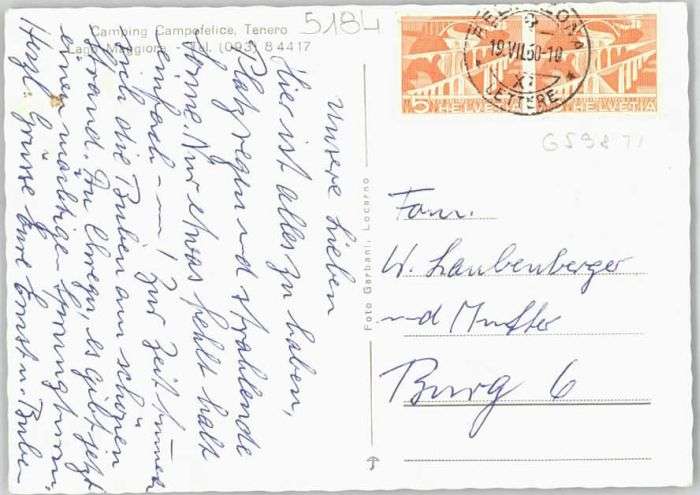 Camping Campofelice, Tenero
Lago Maggiore - Tel. (093) 8 44 17
5184
BELLINZONA
19.VII.60-10
XI
LETTERE
5 HELVETIA
HELVETIA
Unsere Lieben
Hier ist alles zu haben,
Platzregen und strahlende
Sonne. Nur etwas fehlt halt
einfach - m! Zur Zeit tummeln
sich die Buben am schönen
Strand. Du Chregu, es gibt jetzt
einen mächtigen Sprungturm.
Herzl. Grüsse Eure Ernst u. Buben
Foto Garbani, Locarno
Fam.
W. Laubenberger
und Mutter
Burg 6